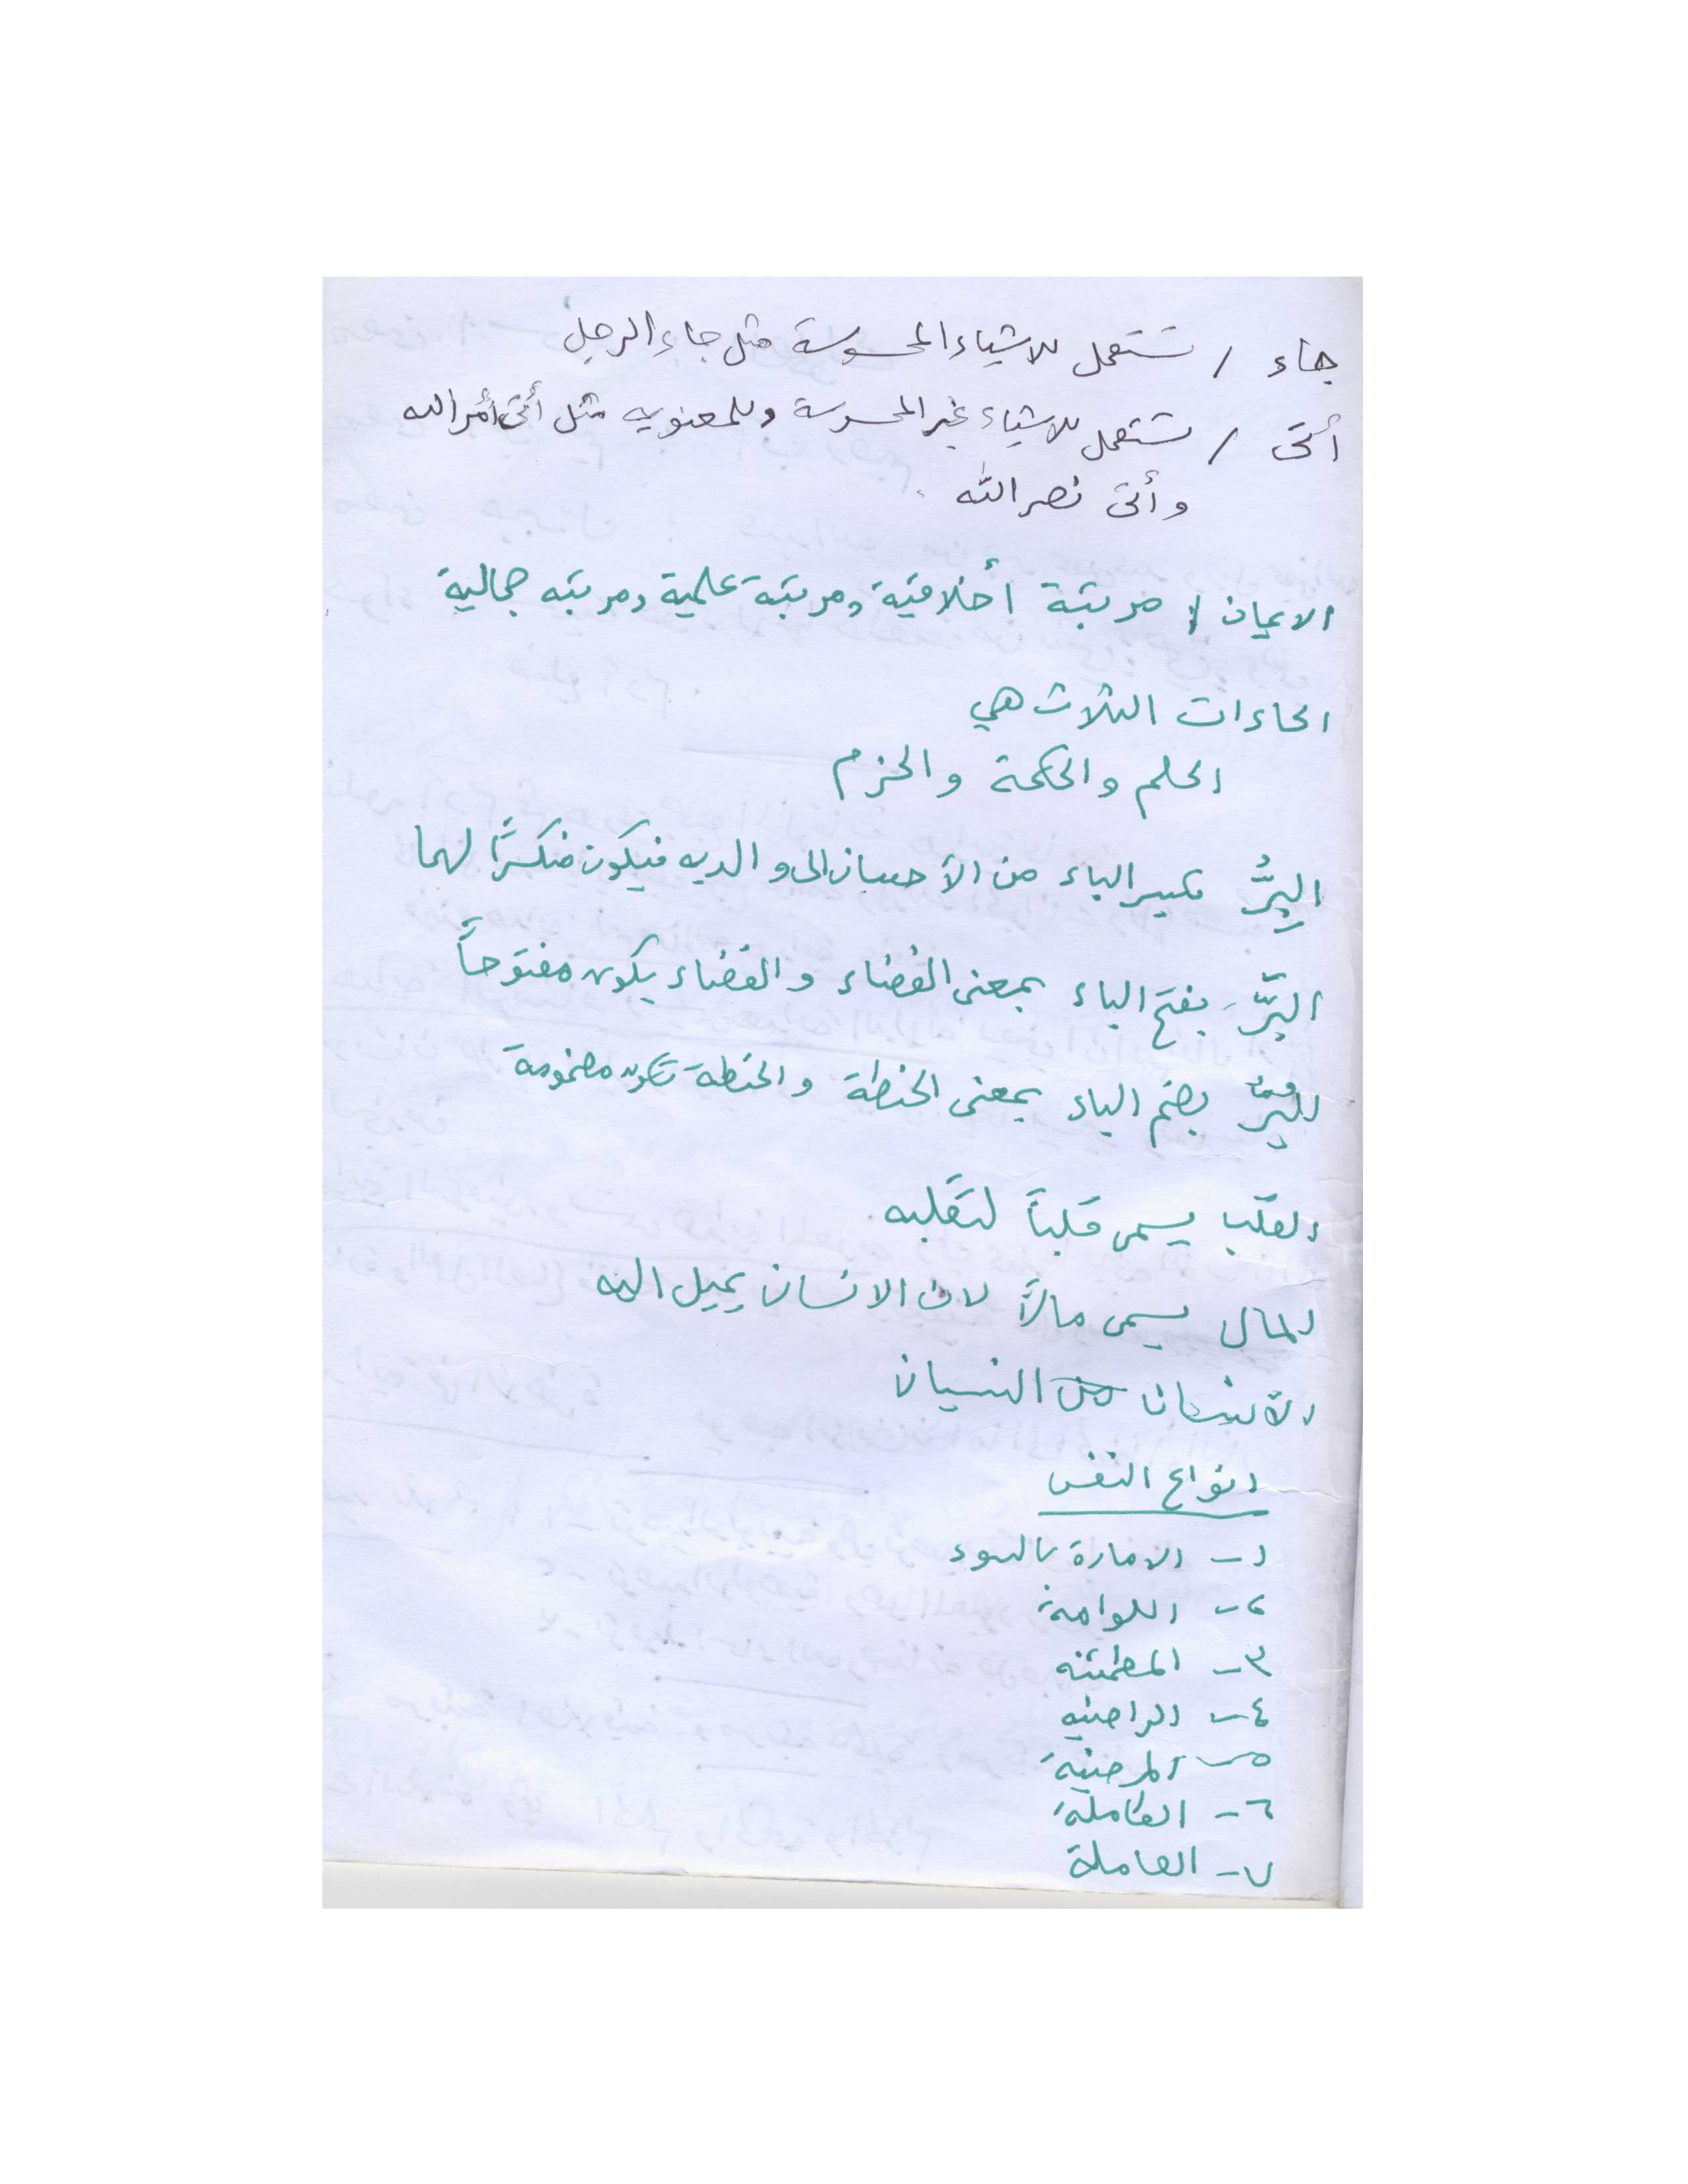 جاء / تستعمل للاشياء المحسوسة مثل جاء الرجل
أتى / تستعمل للاشياء غير المحسوسة وللمعنويه مثل أتى أمر الله
وأتى نصر الله
الايمان / مرتبة أخلاقية ومرتبة علمية ومرتبه جمالية
الحاءات الثلاث هي
الحلم والحكمة والحزم
البِرُّ بكسر الباء من الأحسان الى والديه فيكون منكسراً لهما
البَرَّ بفتح الباء بمعنى الفضاء والفضاء يكون مفتوحاً
البُرّ بضم الباء بمعنى الحنطة والحنطة تكون مضمومة
القلب يسمى قلباً لتقلبه
المال يسمى مالاً لان الانسان يميل اليه
الأنسان من النسيان
انواع النفس
١- الامارة بالسوء
٢- اللوامة
٣- المطمئنه
٤- الراضيه
٥- المرضية
٦- الكاملة
٧- العاملة